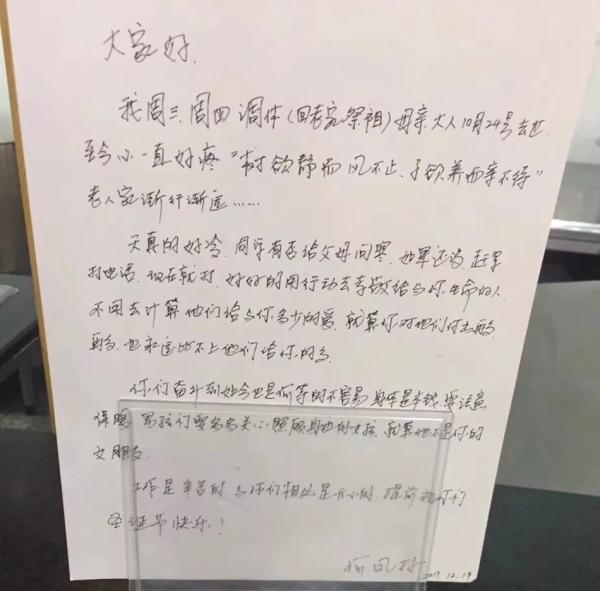 大家好.
我周三.周四调休(回老家祭祖)母亲大人10月24号去世
至今心一直好疼"树欲静而风不止.子欲养而亲不待"
老人家渐行渐远……
天真的好冷.同学有否给父母问寒.如果还没.赶紧
打电话.现在就打.好好的用行动去孝敬给与你生命的人.
不用去计算他们给与你多少的爱.就算你对他们付出再多
再多.也永远比不上他们给你的多.
你们奋斗到如今也是何等的不容易身体是本钱.要注意
保暖 男孩们要多多关心照顾身边的女孩.就算她不是你的
女朋友.
工作是辛苦的.与你们相处是开心的 提前祝你们
圣诞节快乐!
2017.12.19